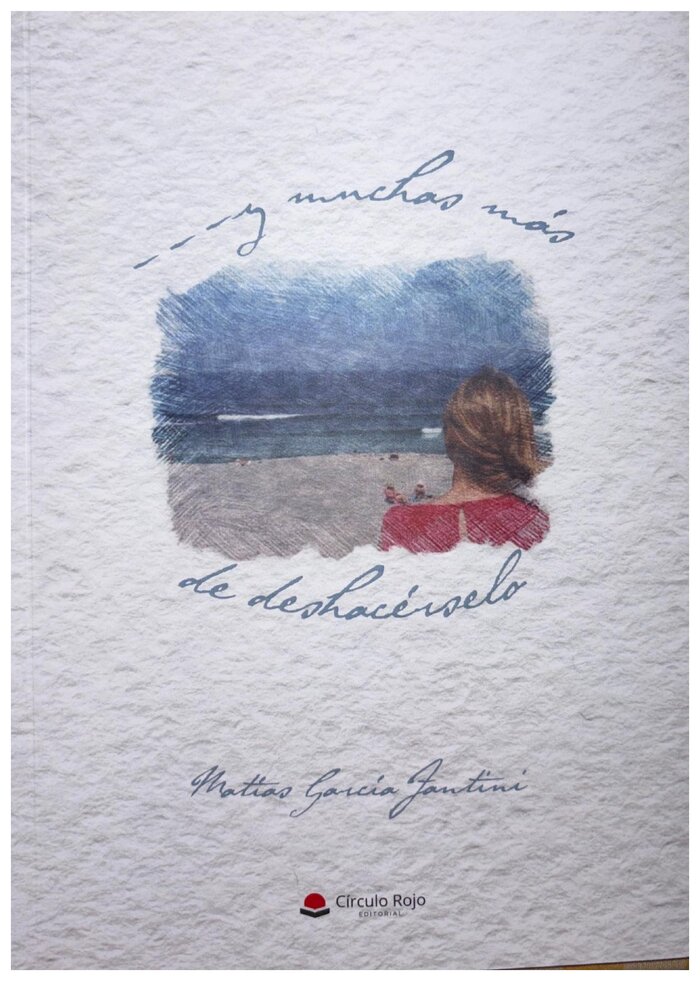 - - - y muchas más
de deshacérselo
Matías García Fantini
Círculo Rojo
EDITORIAL